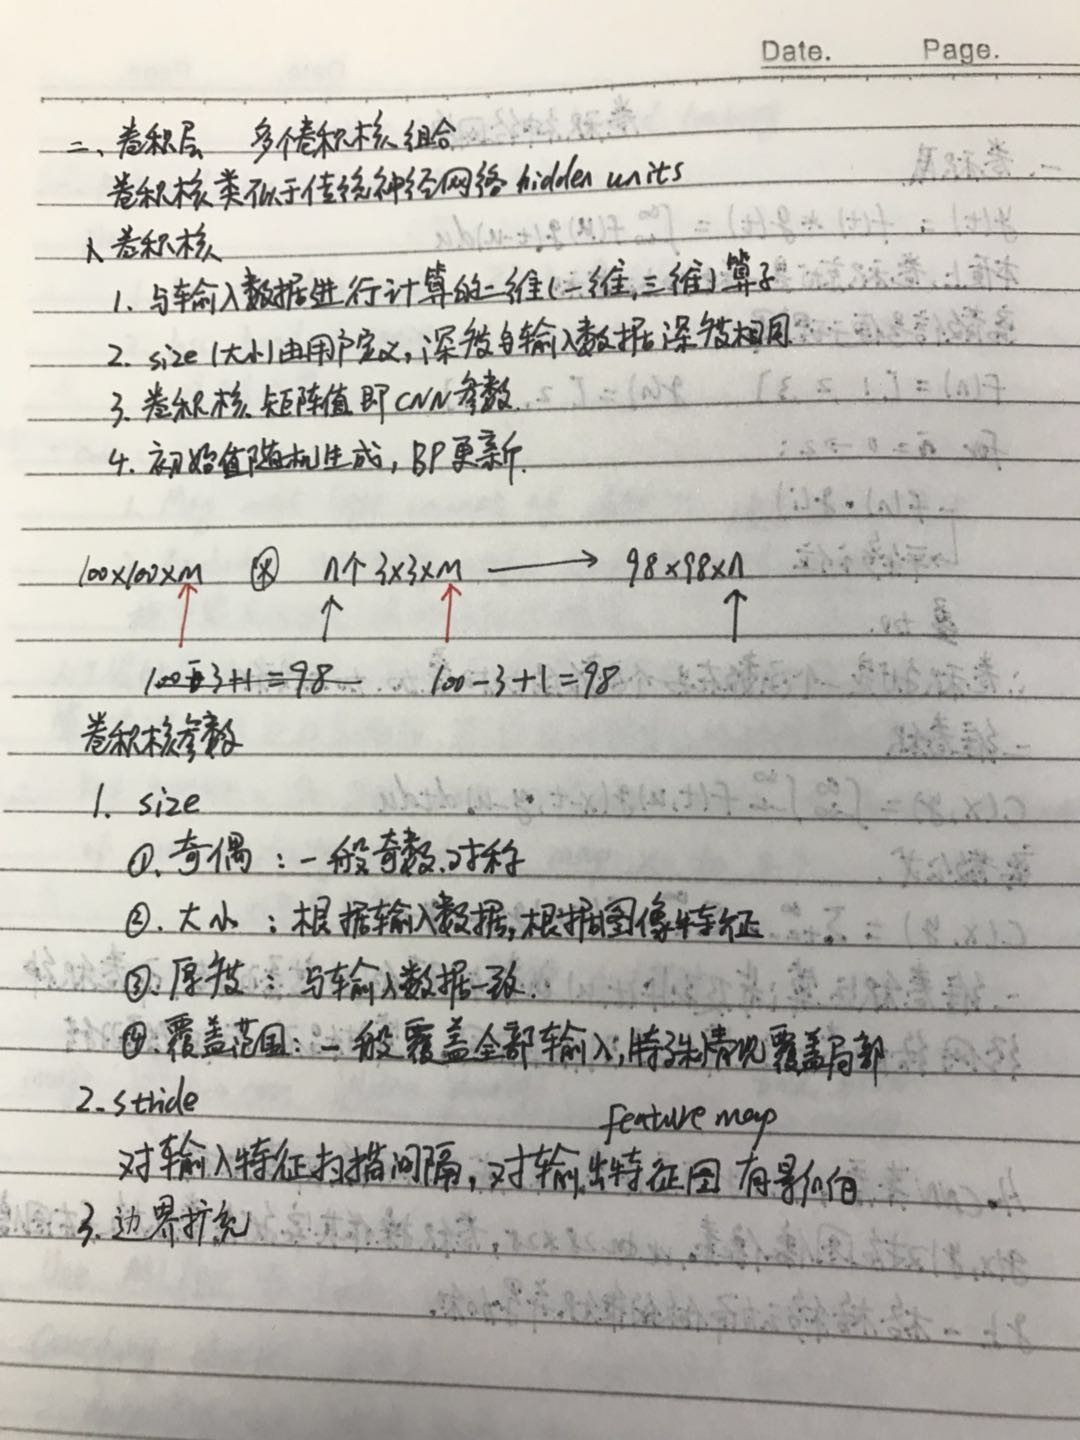 Date. Page.
二、卷积层 多个卷积核组合
卷积核类似于传统神经网络 hidden units
1. 卷积核
1. 与输入数据进行计算的二维(一维,三维)算子
2. size(大小)由用户定义,深度与输入数据深度相同
3. 卷积核矩阵值即CNN参数
4. 初始值随机生成,BP更新.
100×100×m ⊛ n个 3×3×m → 98×98×n
100-3+1=98 100-3+1=98
卷积核参数
1. size
①.奇偶:一般奇数.对称
②.大小:根据输入数据,根据图像特征
③.厚度:与输入数据一致.
④.覆盖范围:一般覆盖全部输入,特殊情况覆盖局部
2. stride
feature map
对输入特征扫描间隔,对输出特征图 有影响
3. 边界扩充